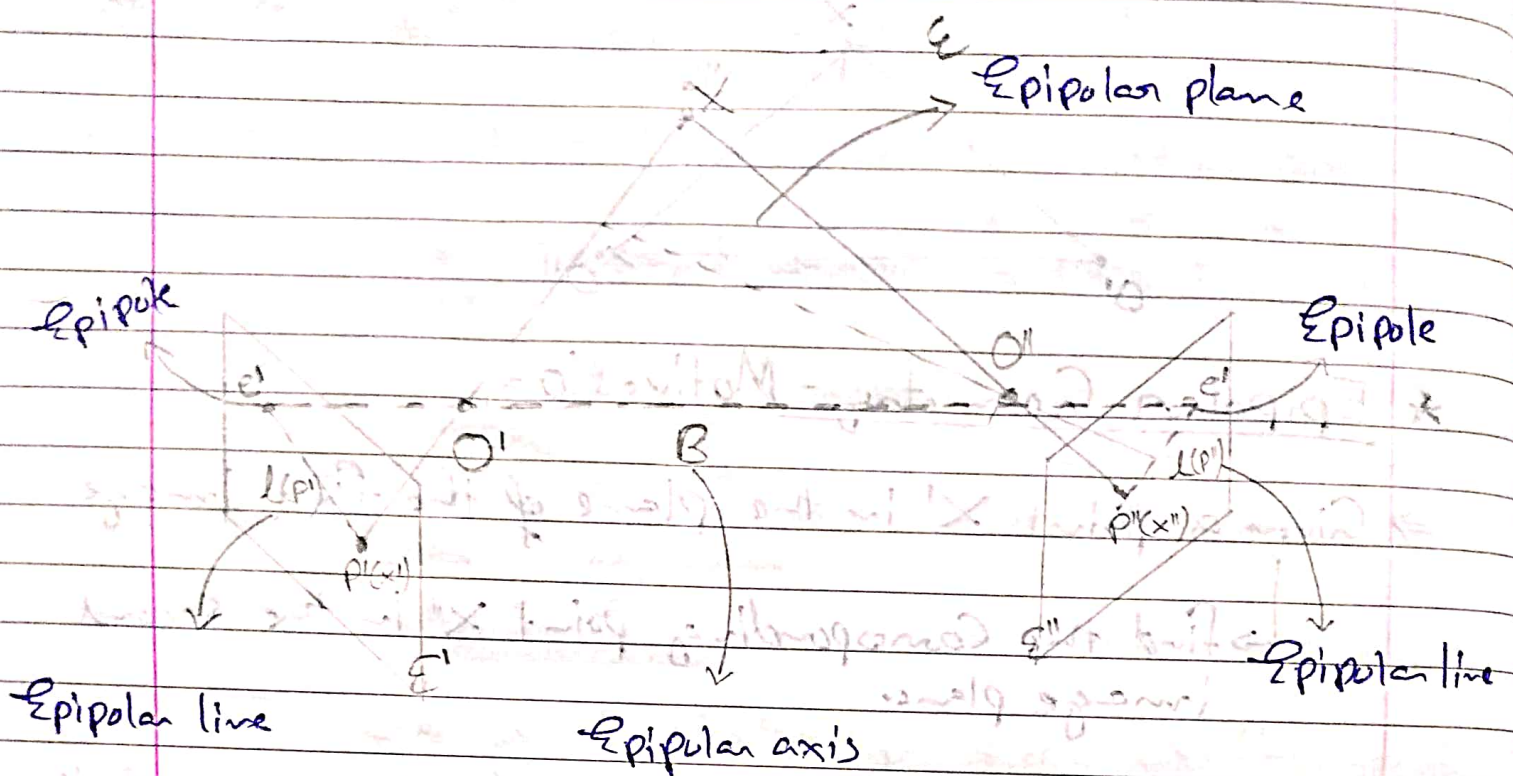 ε
X
Epipolar plane
Epipole
O''
Epipole
e'
e'
O'
B
l(p')
l(p'')
p''(x'')
p'(x')
ε'
ε''
Epipolar line
Epipolar line
Epipolar axis